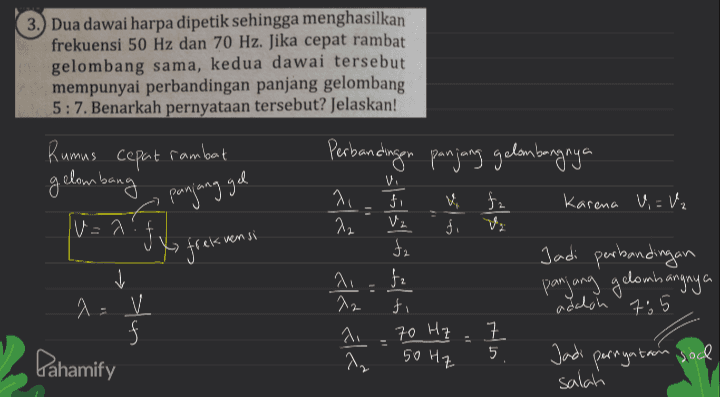 3. Dua dawai harpa dipetik sehingga menghasilkan
frekuensi 50 Hz dan 70 Hz. Jika cepat rambat
gelombang sama, kedua dawai tersebut
mempunyai perbandingan panjang gelombang
5 : 7. Benarkah pernyataan tersebut? Jelaskan!
Rumus cepat rambat
gelombang
panjang gel
V = λ . f
frekuensi
↓
λ = V / f
Perbandingan panjang gelombangnya
λ₁ / λ₂ = (V₁ / f₁) / (V₂ / f₂) = V₁ / f₁ . f₂ / V₂
λ₁ / λ₂ = f₂ / f₁
λ₁ / λ₂ = 70 Hz / 50 Hz = 7 / 5.
Karena V₁ = V₂
Jadi perbandingan
panjang gelombangnya
adalah 7 : 5
Jadi pernyataan soal
salah
Pahamify